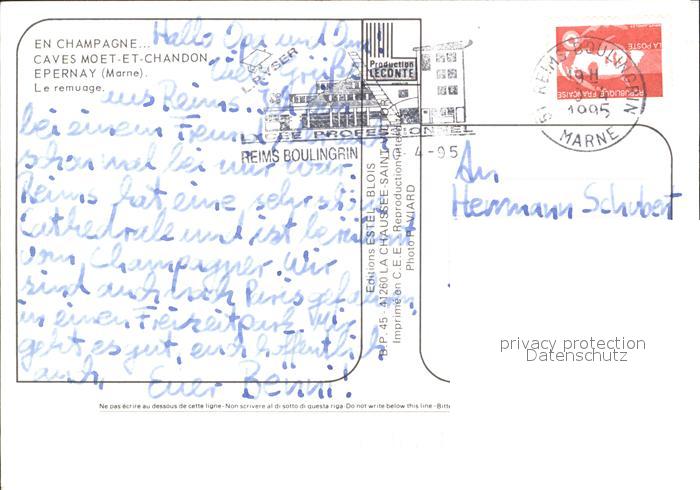 EN CHAMPAGNE...
CAVES MOET-ET-CHANDON
EPERNAY (Marne).
Le remuage.
Hallo Opa und Oma!
Liebe Grüße
aus Reims. Ich
bei einem Freund,
schon mal bei mir war.
Reims hat eine sehr schöne
Cathedrale und ist berühmt
vom Champagner. Wir
sind auch nach Paris gefahren
in einen Freizeitpark. Mir
geht es gut, euch hoffentlich
auch. Euer Benni!
L. RYSER
Production
LECONTE
LYCEE PROFESSIONNEL
REIMS BOULINGRIN
4-95
51 REIMS BOULINGRIN
1995
MARNE
LA POSTE
REPUBLIQUE FRANÇAISE
Editions ESTEL - BLOIS
B.P. 45 - 41260 LA CHAUSSEE-SAINT-VICTOR
Imprimé en C.E.E. Reproduction interdite
Photo PAVIARD
An
Herrmann Schubert
privacy protection
Datenschutz
Ne pas écrire au dessous de cette ligne - Non scrivere al di sotto di questa riga - Do not write below this line - Bitte